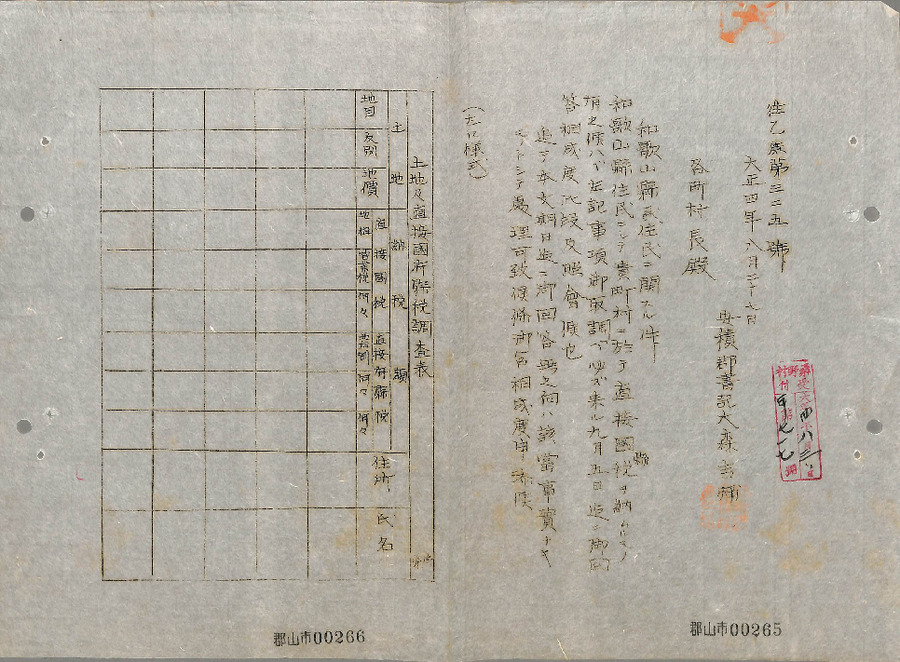 乙第三二五號
大正四年八月二十七日
安積郡書記大森
各町村長殿
和歌山縣住民ニ関スル件
和歌山縣住民ニシテ貴町村ニ於テ直接國税縣ヲ納ムルモノ
有之候ハヾ左記事項御取調ベ来ル九月五日迄ニ御回
答相成度此段及照會候也
追テ本文期日迄ニ御回答無之向ハ該當事實ナキ
モノトシテ處理可致候條御含相成度申添候
(様式)
土地及直接國府縣税調査表
土地
納税額
地目
反別
地價
直接國税
地租
営業税
何々
直接府縣税
何々
何々
住所
氏名
郡山市00265
郡山市00266